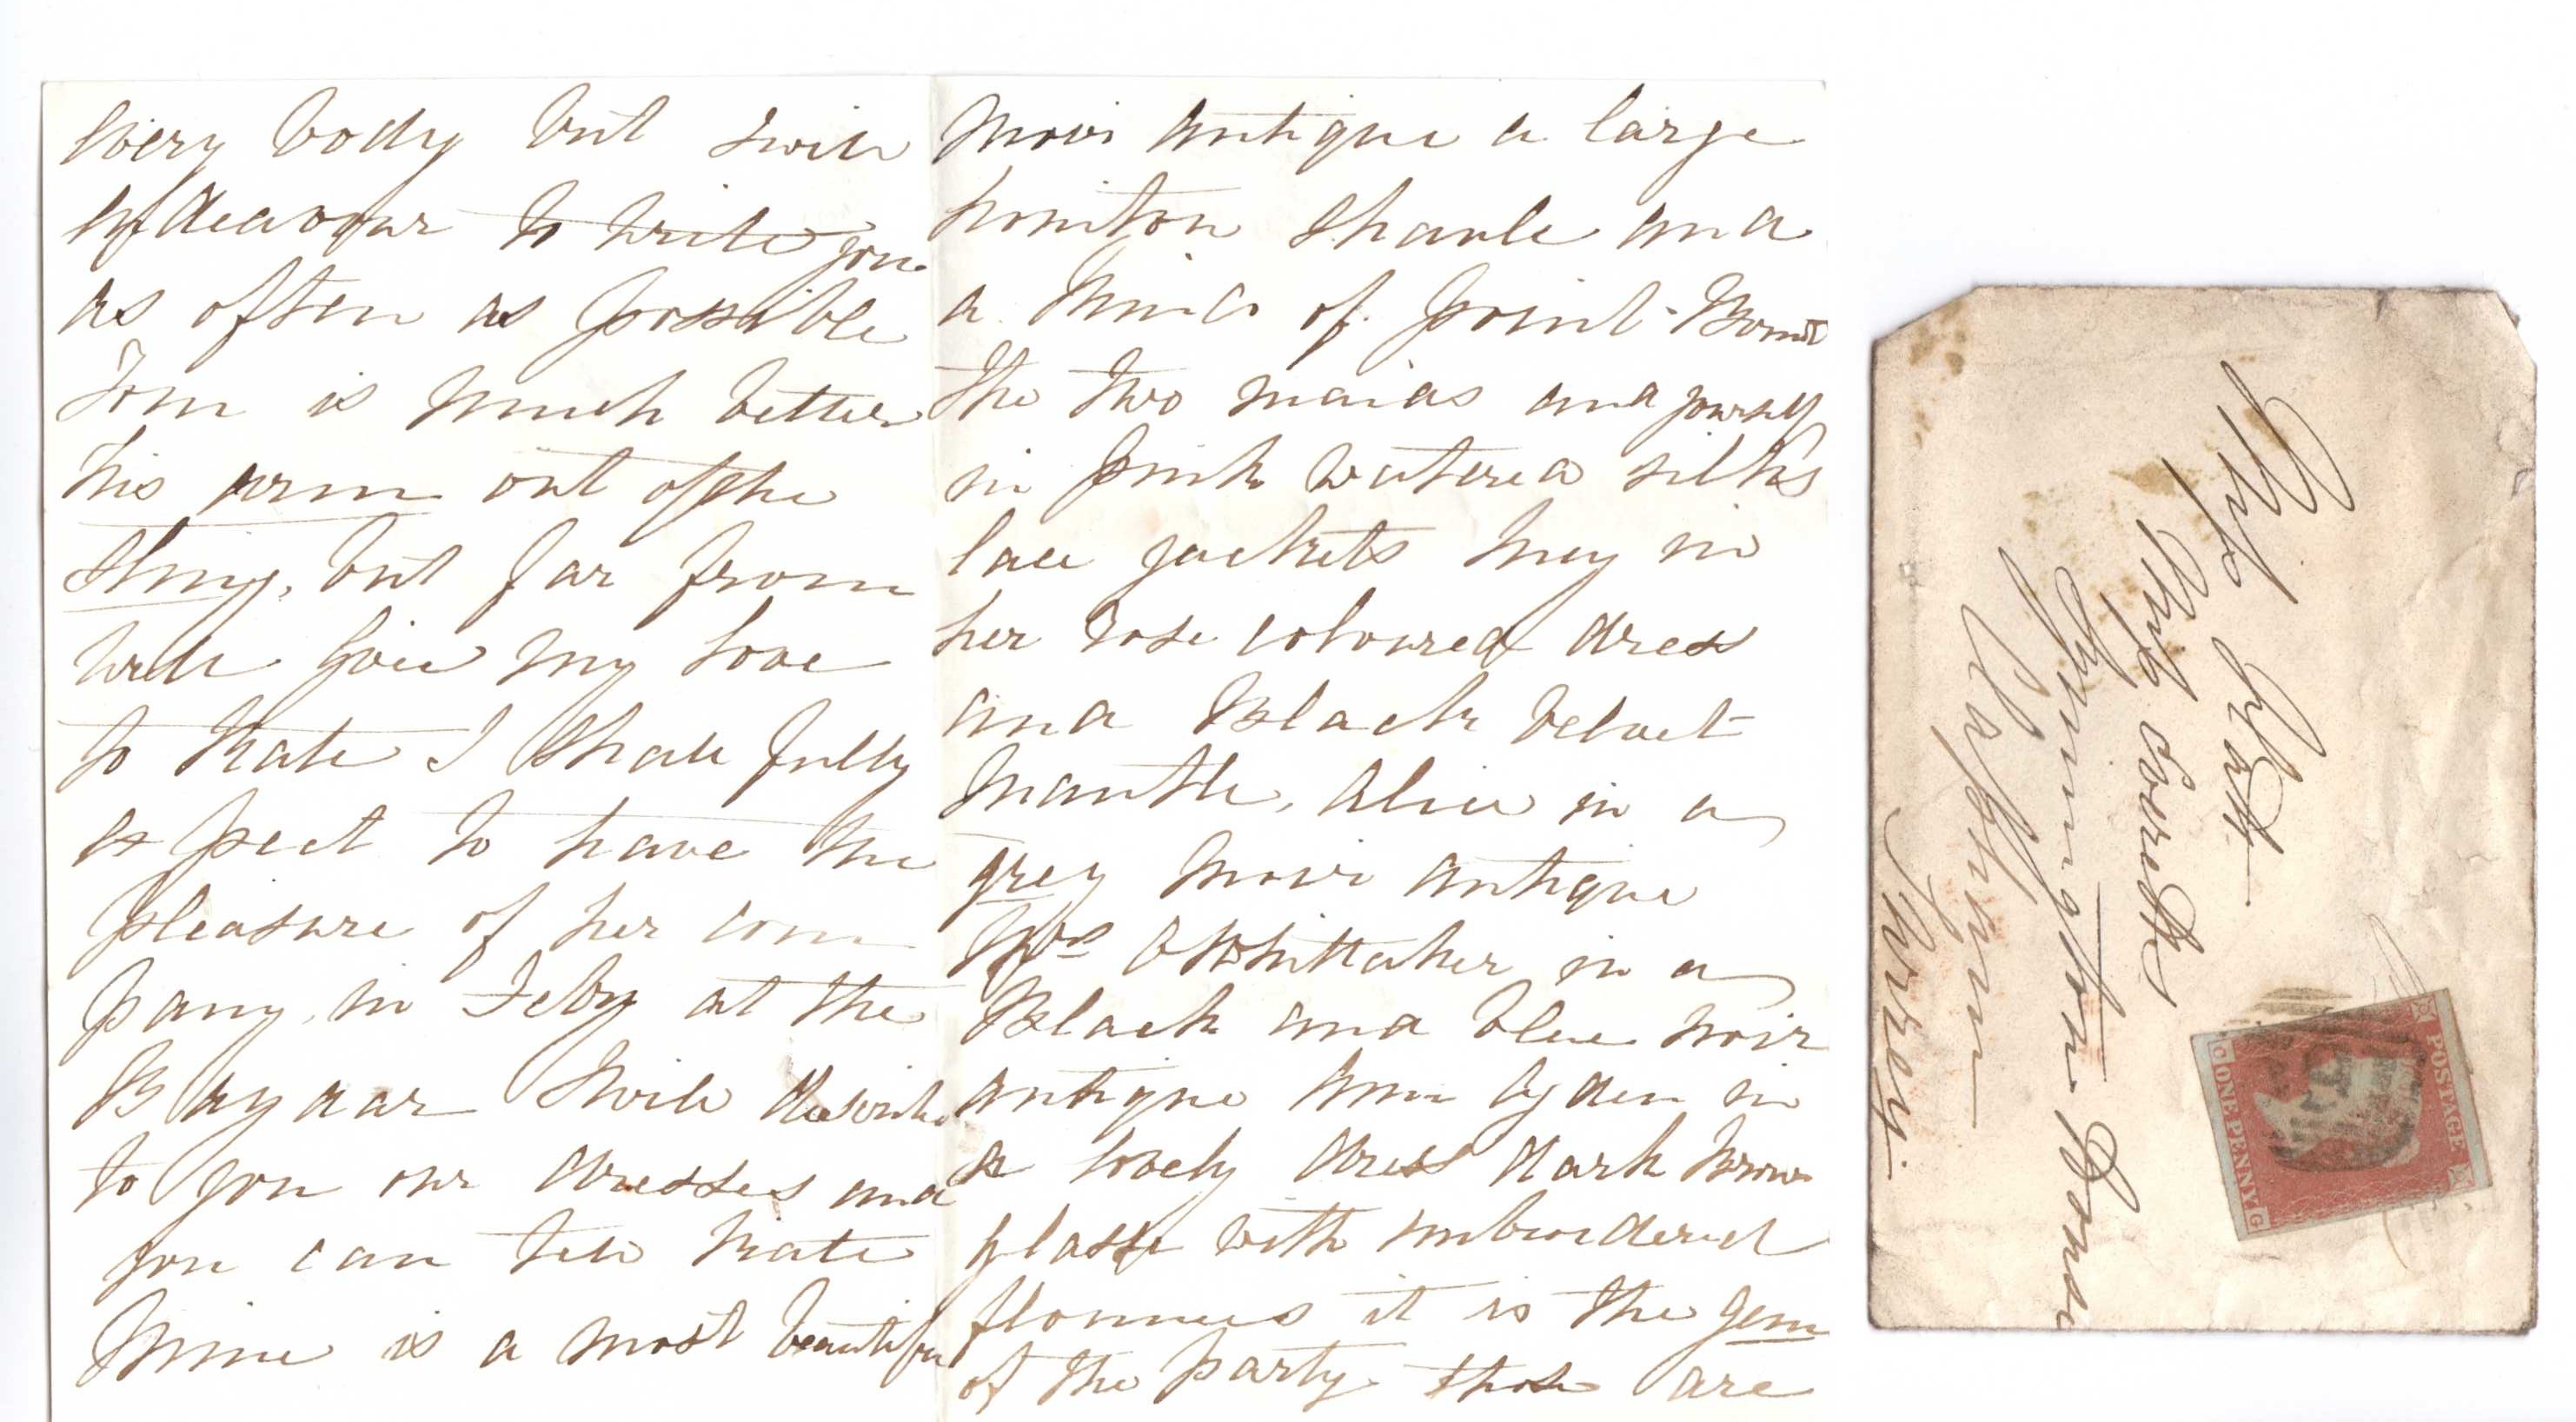 every body but I will
endeavour to write you
as often as possible
Tom is much better
his arm out of the
sling, but far from
well give my love
to Kate I shall fully
expect to have the
pleasure of her com
pany in Feby at the
Bazaar I will describe
to you our dresses and
you can tell Kate
Mine is a most beautiful
moir antique a large
honiton shawle and
a kind of point Bonnet
the two maids and yourself
in pink watered silks
lace jackets Meg in
her rose coloured dress
and Black velvet
mantle, Alice in a
grey moir antique
Mrs Whittaker in a
Black and blue moir
antique Ann Lyden in
a lovely dress dark brown
glasse with imbroidered
flounces it is the gem
of the party those are
Miss Slott
Miss Corretts
Gymington House
Clapham
Surrey.
POSTAGE
C ONE PENNY G